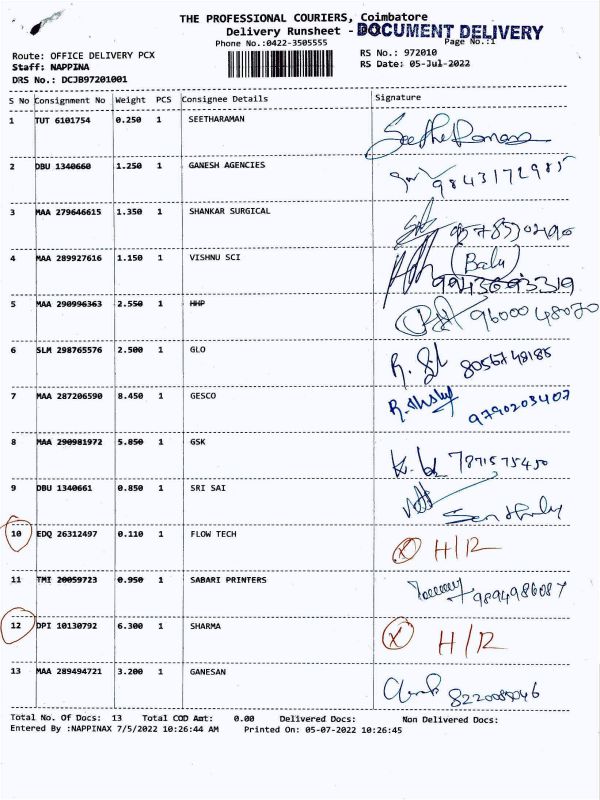 THE PROFESSIONAL COURIERS, Coimbatore
Delivery Runsheet - DOCUMENT DELIVERY
Phone No.:0422-3505555 Page No.:1
Route: OFFICE DELIVERY PCX RS No.: 972010
Staff: NAPPINA RS Date: 05-Jul-2022
DRS No.: DCJB97201001
S No Consignment No Weight PCS Consignee Details Signature
1 TUT 6101754 0.250 1 SEETHARAMAN
2 DBU 1340660 1.250 1 GANESH AGENCIES 9843172985
3 MAA 279646615 1.350 1 SHANKAR SURGICAL
4 MAA 289927616 1.150 1 VISHNU SCI (Balu)
5 MAA 290996363 2.550 1 HHP 9600048070
6 SLM 298765576 2.500 1 GLO 8056748185
7 MAA 287206590 8.450 1 GESCO 9790203407
8 MAA 290981972 5.850 1 GSK 7871575450
9 DBU 1340661 0.850 1 SRI SAI
10 EDQ 26312497 0.110 1 FLOW TECH X H/R
11 TMI 20059723 0.950 1 SABARI PRINTERS 9894986087
12 DPI 10130792 6.300 1 SHARMA X H/R
13 MAA 289494721 3.200 1 GANESAN
Total No. Of Docs: 13 Total COD Amt: 0.00 Delivered Docs: Non Delivered Docs:
Entered By :NAPPINAX 7/5/2022 10:26:44 AM Printed On: 05-07-2022 10:26:45